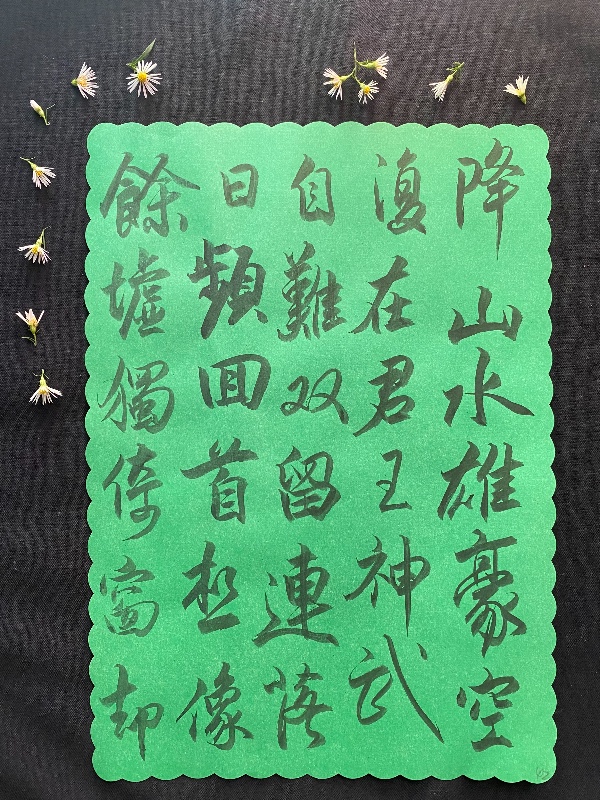 降山水雄豪空
復在君王神武
自難双留連落
日頻囬首想像
餘墟獨倚窗却